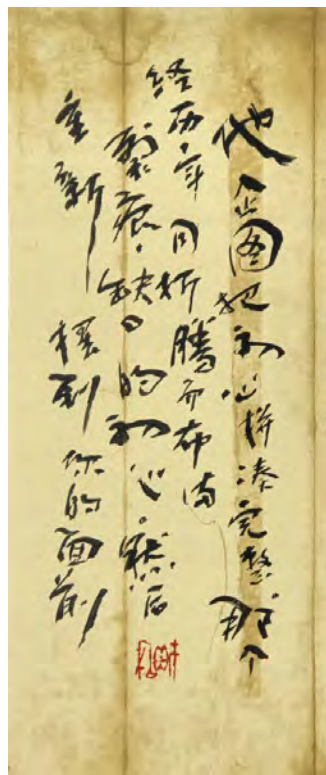 他企图把初心拼凑完整那个
经历年月折腾而布满
裂痕、缺口的初心。然后
重新摆到你的面前